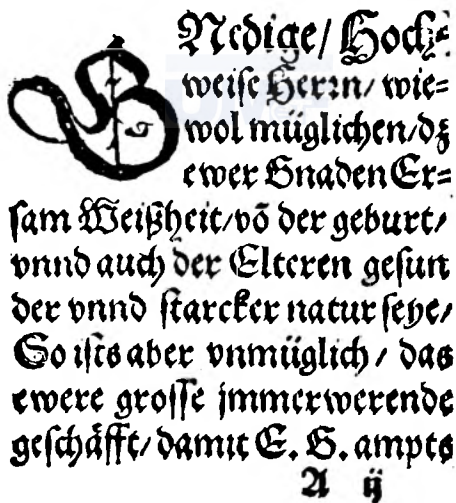 GNedige/ Hoch⸗
weise Herrn/ wie⸗
wol müglichen/dz
ewer Gnaden Er⸗
sam Weißheit/võ der geburt/
vnnd auch der Elteren gesun
der vnnd starcker natur seye/
So ists aber vnmüglich / das
ewere grosse jmmerwerende
geschäfft/ damit E. G. ampts
A ij